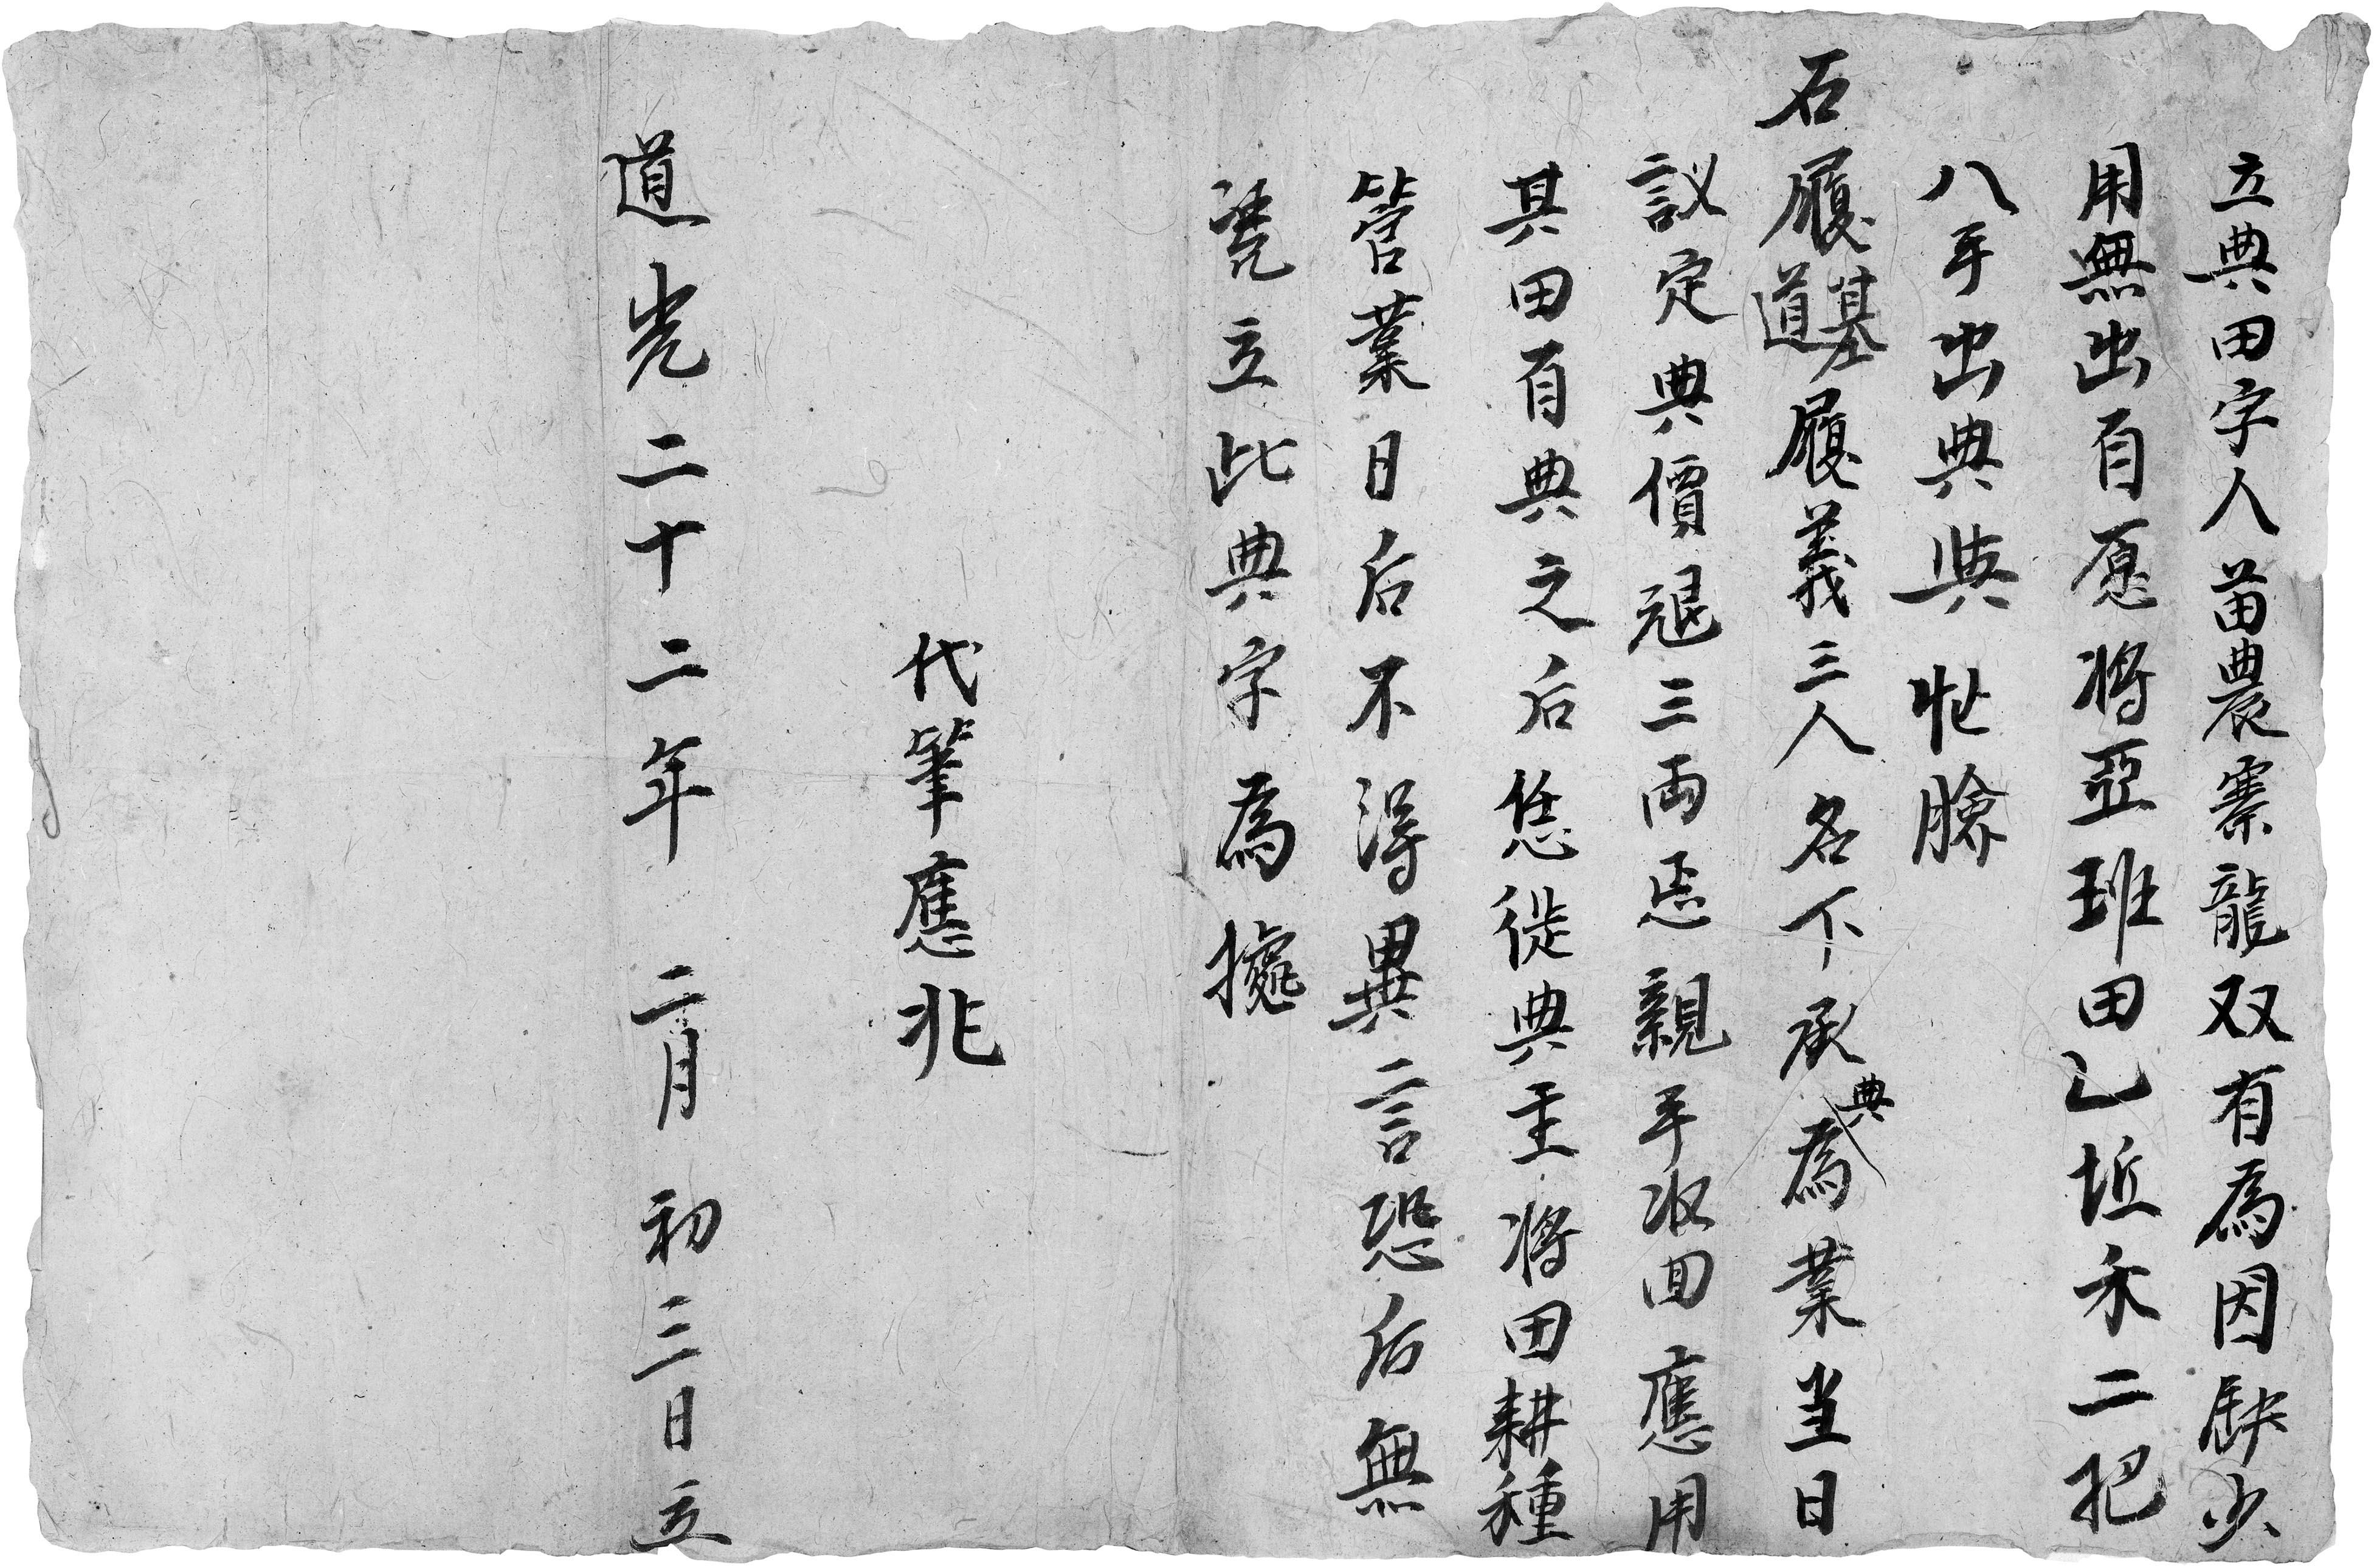 立典田字人苗農寨龍双有為因缺少
用無出自愿将亞班田乙坵禾二把
八手出典與忙臉
石履基道履義三人名下承典為業当日
議定典價銀三両悉親手收回應用
其田自典之后恁從典主将田耕種
管業日后不得異言恐后無
凴立此典字為據
代筆應兆
道光二十二年二月初三日立